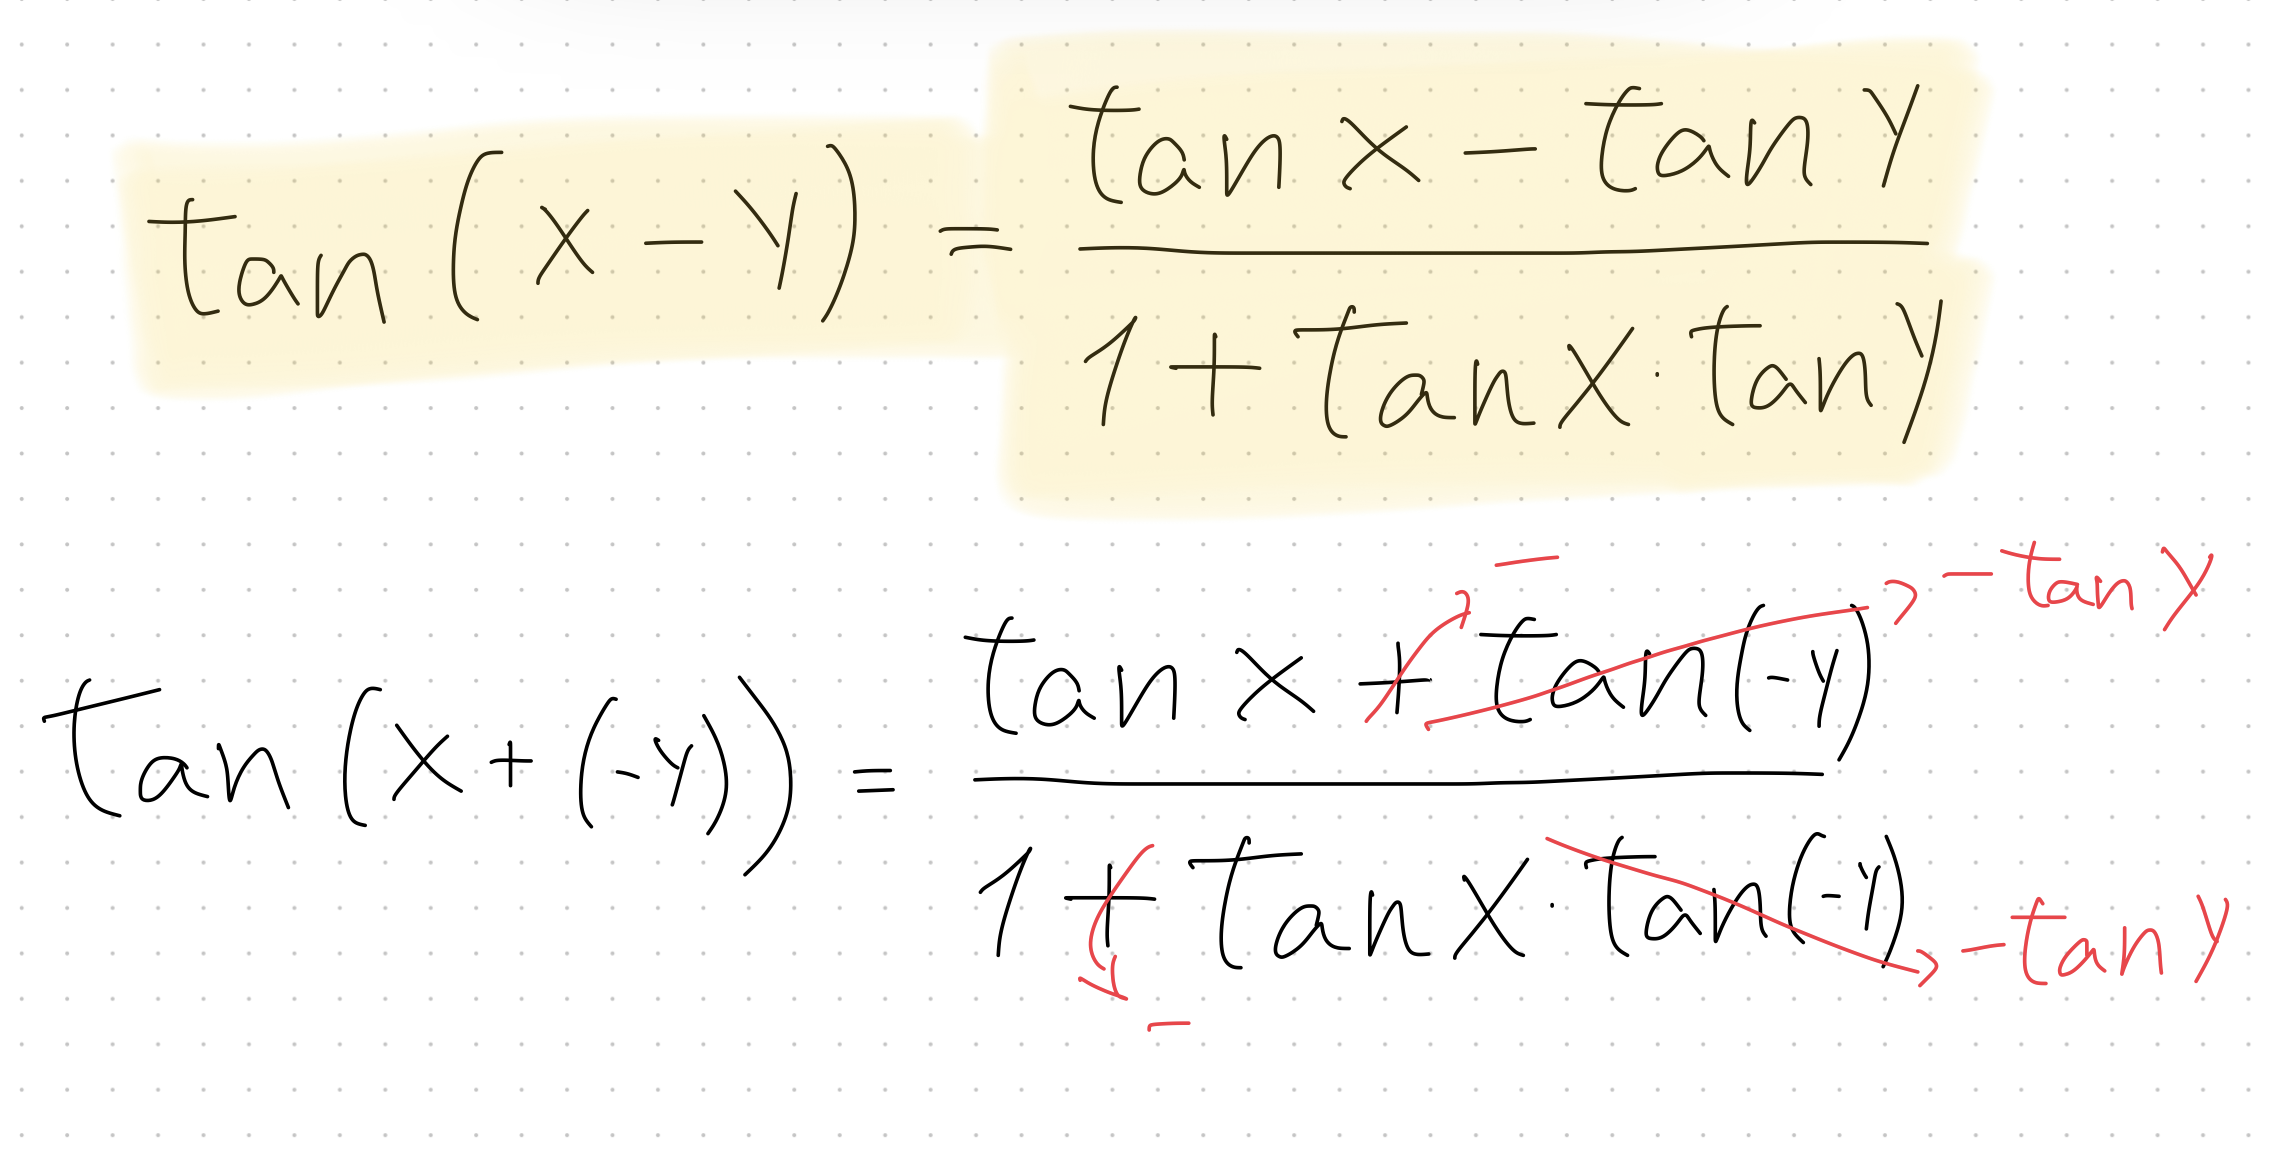 tan (x - y) = (tan x - tan y) / (1 + tan x · tan y)
- -tan y
tan (x + (-y)) = (tan x + tan(-y)) / (1 + tan x · tan(-y))
-tan y
-